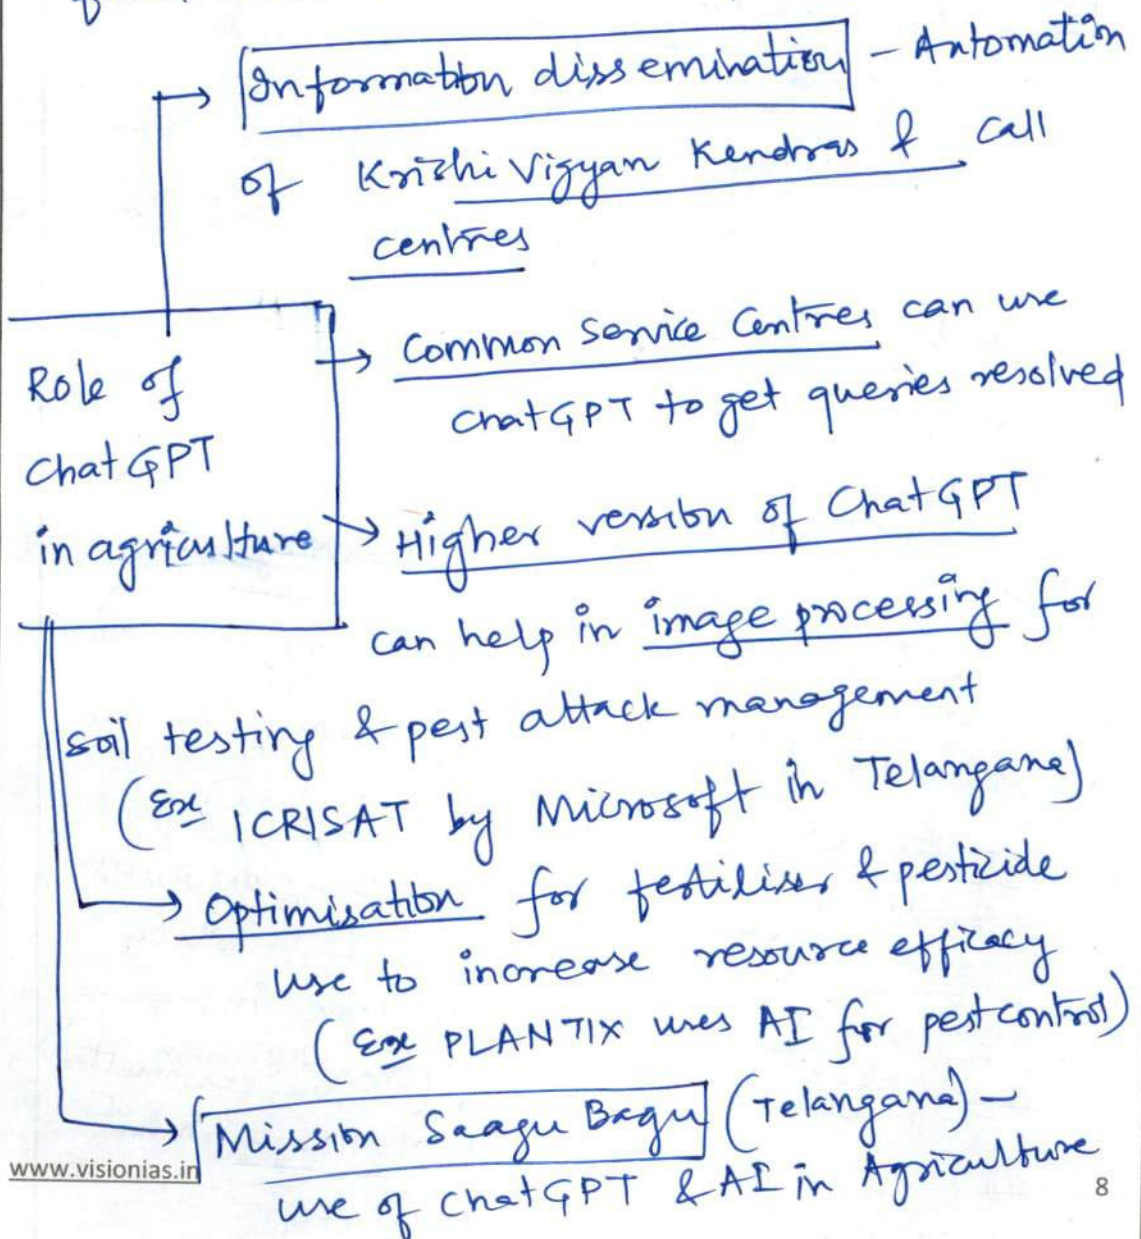 Information dissemination - Automation
of Krishi Vigyan Kendras & call
centres
Common Service Centres can use
ChatGPT to get queries resolved
Role of
ChatGPT
in agriculture
Higher version of ChatGPT
can help in image processing for
soil testing & pest attack management
(Ex ICRISAT by Microsoft in Telangana)
Optimisation for fertiliser & pesticide
use to increase resource efficacy
(Ex PLANTIX uses AI for pest control)
Mission Saagu Bagu (Telangana) -
use of ChatGPT & AI in Agriculture
www.visionias.in
8